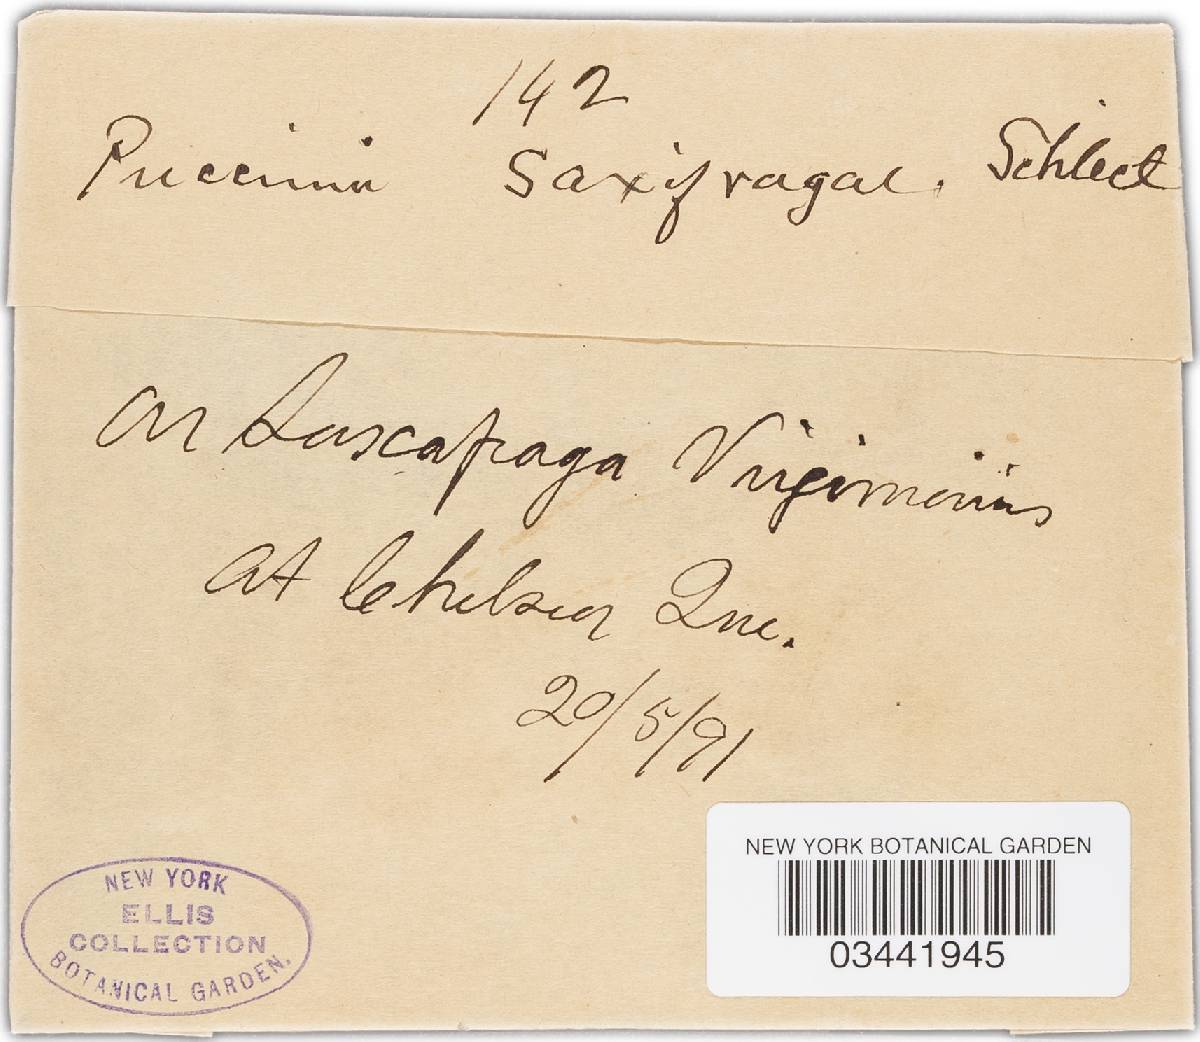 142
Puccinia Saxifragae. Schlect
on Saxcafraga Virginiensis
at Chelsea Que.
20/5/91
NEW YORK BOTANICAL GARDEN
03441945
NEW YORK
ELLIS
COLLECTION
BOTANICAL GARDEN.